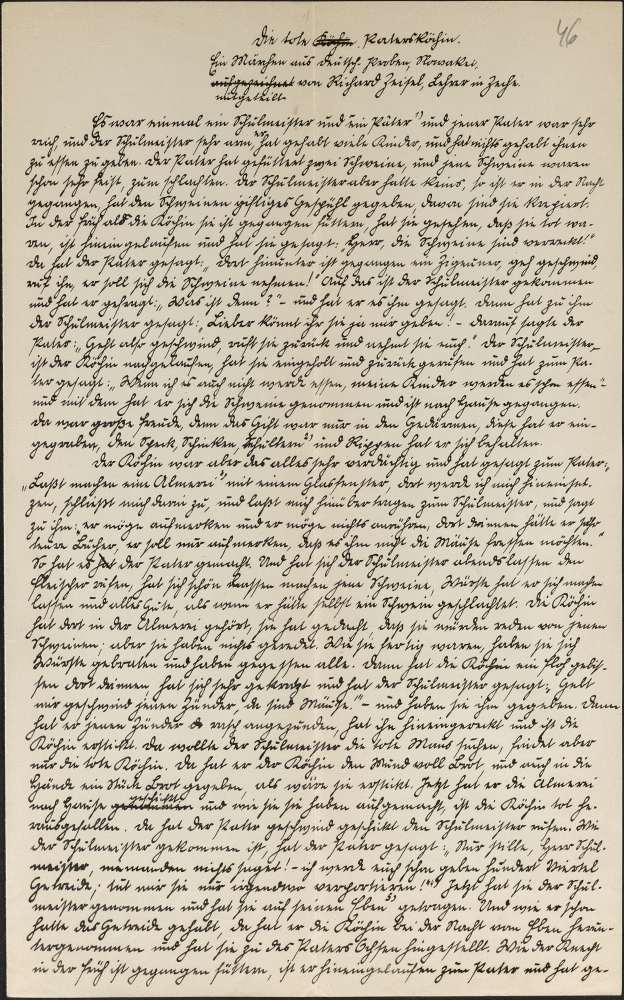 46
Die tote Köchin Paterskӧchin.
Ein Märchen aus Deutsch-Proben, Slowakei,
aufgezeichnet von Richard Zeisel, Lehrer in Zeche.
mitgeteilt
Es war einmal ein Schulmeister und ein Pater 1) und jener Pater war sehr
reich, und der Schulmeister sehr arm, er hat gehabt viele Kinder, und hat nichts gehabt ihnen
zu essen zu geben. Der Pater hat gefüttert zwei Schweine, und jene Schweine waren
schon sehr feist, zum schlachten. Der Schulmeister aber hatte keins, so ist er in der Nacht
gegangen, hat den Schweinen giftiges Gespühl gegeben, davon sind sie krepiert.
In der Früh als die Köchin sie ist gegangen füttern, hat sie gesehen, daß sie tot wa-
ren, ist hinein gelaufen und hat sie gesagt: Herr, die Schweine sind verreckt!"
Da hat der Pater gesagt: „Dort hinunter ist gegangen ein Zigeuner, geh geschwind,
ruf ihn, er soll sich die Schweine nehmen!" Auf das ist der Schulmeister gekommen
und hat er gefragt: „Was ist denn? " – und hat er es ihm gesagt. Dann hat zu ihm
der Schulmeister gesagt: „Lieber könnt ihr sie ja mir geben! – Darauf sagte der
Pater: „Geht also geschwind, ruft sie zurück und nehmt sie euch! Der Schulmeister
ist der Köchin nachgelaufen, hat sie eingeholt und zurückgerufen und hat zum Pa-
ter gesagt: „Wenn ich es auch nicht werde essen, meine Kinder werden es schon essen"
und mit dem hat er sich die Schweine genommen und ist nach Hause gegangen.
Da war große Freude, denn das Gift war nur in den Gedärmen, diese hat er ein-
gegraben, den Speck, Schinken, Schultern 2) und Rippen hat er sich behalten.
Der Köchin war aber das alles sehr verdächtig und hat gesagt zum Pater:
„Laßt machen eine Almerei 3) mit einem Glasfenster, dort werde ich mich hineinset-
zen, schließt mich darin zu, und laßt mich hinübertragen zum Schulmeister, und sagt
zu ihm: er möge aufmerken und er möge nichts anrühren, dort drinnen hätte er sehr
teure Bücher, er soll nur aufmerken, daß es ihm nicht die Mäuse fressen möchten."
So hat es der Pater gemacht. Und hat sich der Schulmeister abends lassen den
Fleischer rufen, hat sich schön lassen machen jene Schweine, Würste hat er sich machen
lassen und alles Gute, als wenn er hätte selbst ein Schwein geschlachtet. Die Köchin
hat dort in der Almerei gehört, sie hat gedacht, daß sie würden reden von jenen
Schweinen; aber sie haben nichts geredet. Wie sie fertig waren, haben sie sich
Würste gebraten und haben gegessen alle. Dann hat die Köchin ein Floh gebis-
sen dort drinnen, hat sich sehr gekratzt und hat der Schulmeister gesagt: „Gebt
mir geschwind jenen Zünder, da sind Mäuse." – und haben sie ihm gegeben. Dann
hat er jenen Zünder rasch angezunden, hat ihn hineingereckt und ist die
Köchin erstickt. Da wollte der Schulmeister die tote Maus suchen, findet aber
nur die tote Köchin. Da hat er der Köchin den Mund voll Brot, und auch in die
Hände ein Stück Brot gegeben, als wäre sie erstickt. Jetzt hat er die Almerei
nach Hause geschickt und wie sie sie haben aufgemacht, ist die Köchin tot he-
rausgefallen. Da hat der Pater geschwind geschickt den Schulmeister rufen. Wie
der Schulmeister gekommen ist, hat der Pater gesagt: „Nur stille, Herr Schul-
meister, niemanden nichts saget! – ich werde euch schon geben hundert Viertel
Getreide, tut mir sie nur irgendwo verportieren! 4)" Jetzt hat sie der Schul-
meister genommen und hat sie auf seinen Eben 5) getragen. Und wie er schon
hatte das Getreide gehabt, da hat er die Köchin bei der Nacht vom Eben herun-
tergenommen und hat sie zu des Paters Ochsen hingestellt. Wie der Knecht
in der Früh ist gegangen füttern, ist er hineingelaufen zum Pater und hat ge-